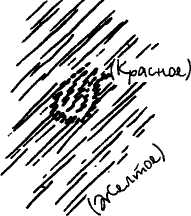 (Красное)
(Желтое)